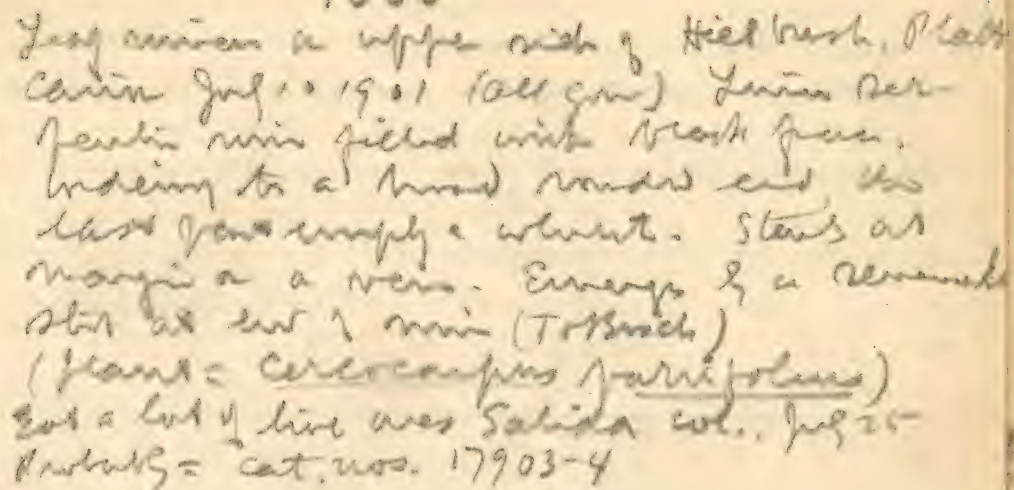 Leaf miner on upper side of Hill brush, Platt
Cañon July 10 1901 (all gone) Linear ser-
pentin mine filled with black frass,
widening to a broad rounded end, the
last part empty & whitish. Starts at
margin or a vein. Emerges by a
slit at end of mine (To Busck)
(Plant = Cercocarpus parvifolius)
Got a lot of live ones Salida Col., July 25
Probably = cat. nos. 17903-4